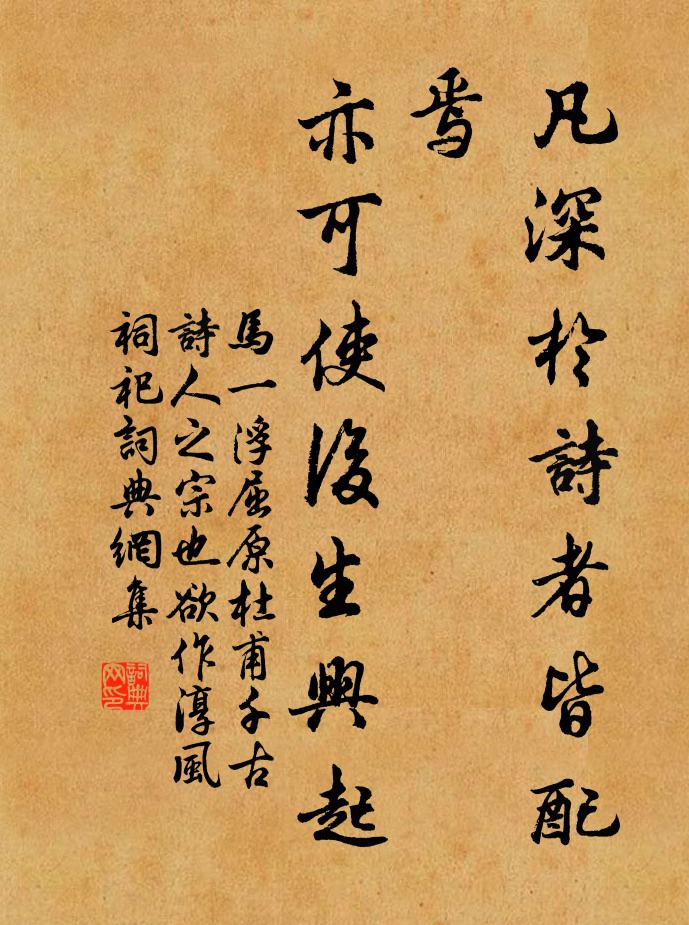 凡深於詩者皆配
焉
亦可使後生興起
馬一浮屈原杜甫千古
詩人之宗也欲作淳風
祠祀詞典網集
詞典網印